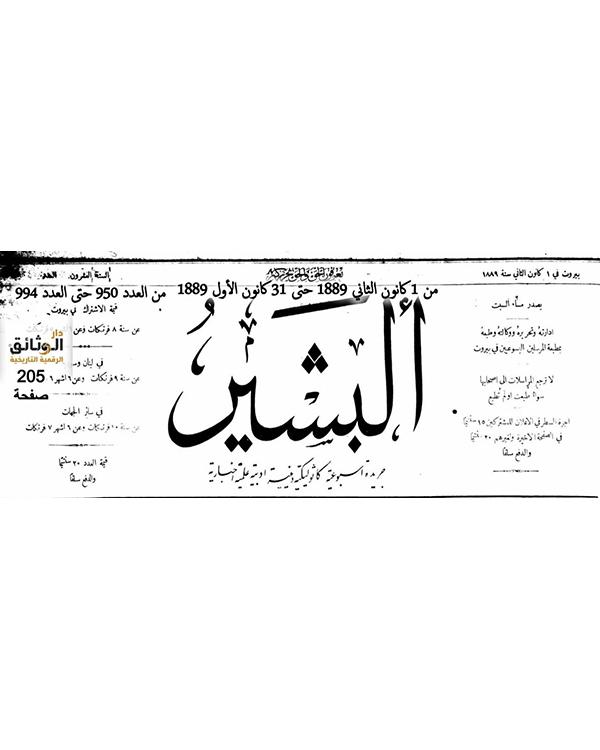 بيروت في ١ كانون الثاني سنة ١٨٨٩
السنة العشرون
من 1 كانون الثاني 1889 حتى 31 كانون الأول 1889
من العدد 950 حتى العدد 994
البشير
جريدة اسبوعية كاثوليكية دينية ادبية علمية اخبارية
يصدر مساء السبت
ادارته وتحريره ووكالته وطبعه
بمطبعة المرسلين اليسوعيين في بيروت
لا ترجع المراسلات الى اصحابها
سواء طبعت او لم تطبع
اجرة السطر في الاعلان للمشتركين ١٥ سنتيما
في الصفحة الاخيرة ولغيرهم ٢٠ سنتيما
والدفع سلفا
قيمة الاشتراك في بيروت
عن سنة ٨ فرنكات
في لبنان
عن سنة ٩ فرنكات وعن ٦ اشهر
في سائر الجهات
عن سنة ١٠ فرنكات وعن ٦ اشهر ٧ فرنكات
قيمة العدد ٢٠ سنتيما
والدفع سلفا
دار
الوثائق
الرقمية التاريخية
205
صفحة